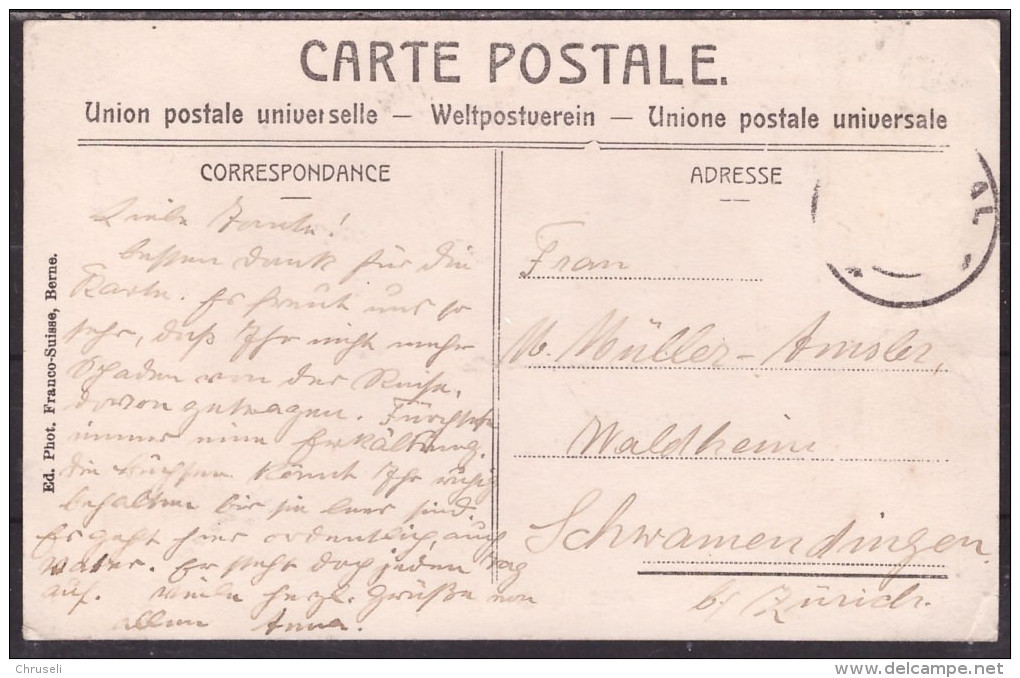 CARTE POSTALE.
Union postale universelle — Weltpostverein — Unione postale universale
CORRESPONDANCE
Liebe Tante!
besten Dank für die
Karte. Es freut uns so
sehr, daß Ihr nicht mehr
Schaden von der Reise
davon getragen. Fürchtete
immer eine Erkältung.
die Büchsen könnt Ihr ruhig
behalten bis sie leer sind.
Es geht hier ordentlich, auch
Vater. Er steht doch jeden Tag
auf. Viele herzl. Grüße von
allen Anna.
ADRESSE
AL
Frau
M. Müller-Amsler,
Waldheim
Schwamendingen
b/ Zürich.
Ed. Phot. Franco-Suisse, Berne.
Chruseli
delcampe.net